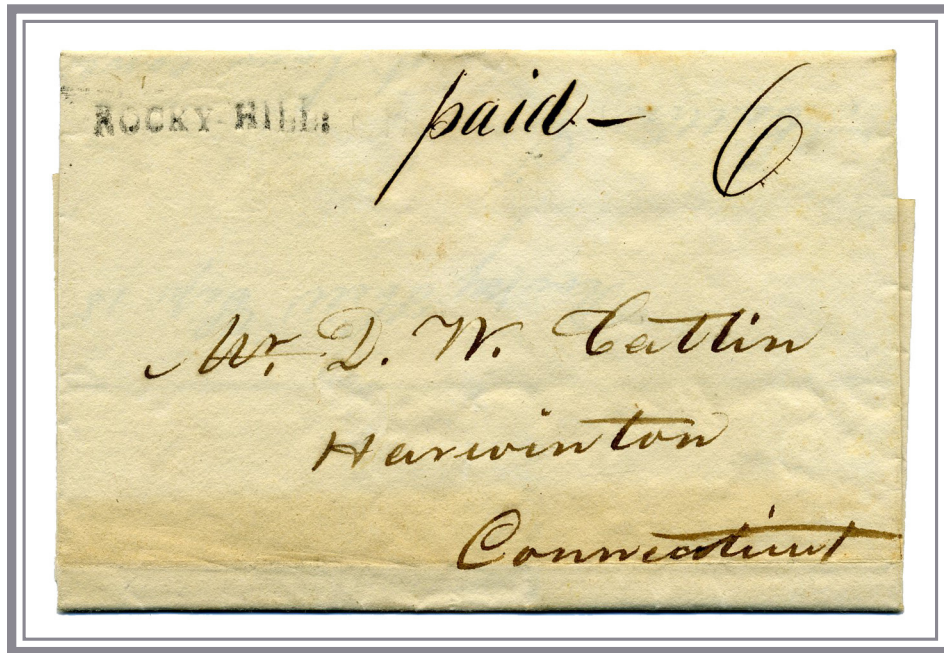 ROCKY HILL:
paid - 6
Mr. D. W. Catlin
Harwinton
Connecticut